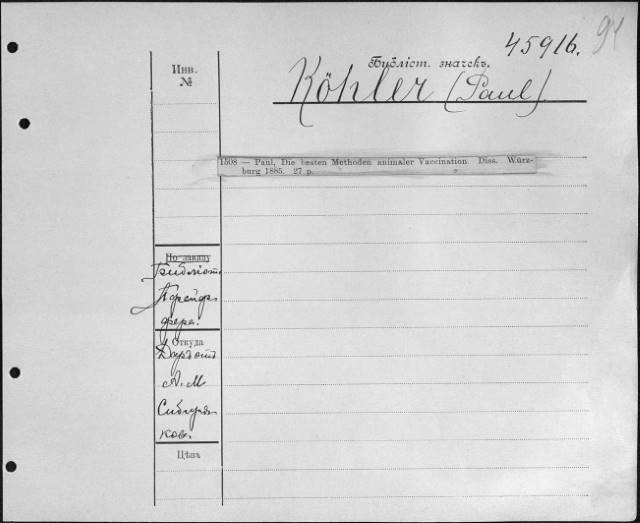 45916. 94
Инв.
№
Библіот. значекъ.
Köhler (Paul).
1508 — Paul, Die besten Methoden animaler Vaccination. Diss. Würz-
burg 1885. 27 p.
По заказу
Библіот.
Порейфе
фера.
Откуда
Даръ отъ
А. М.
Сибиря
кова.
Цѣна